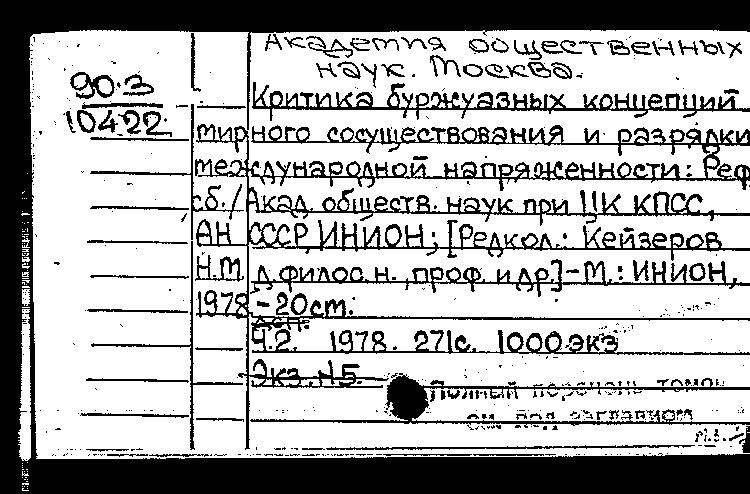 Академия общественных
наук. Москва.
90·3
10422
Критика буржуазных концепций
мирного сосуществования и разрядки
международной напряженности: Реф
сб./Акад. обществ. наук при ЦК КПСС,
АН СССР, ИНИОН; [Редкол.: Кейзеров
Н.М д.филос.н., проф. и др.]-М.: ИНИОН,
1978 -20см.
Ч.2. 1978. 271с. 1000экз
Экз. №5.
Полный перечень томов
см. под заглавием